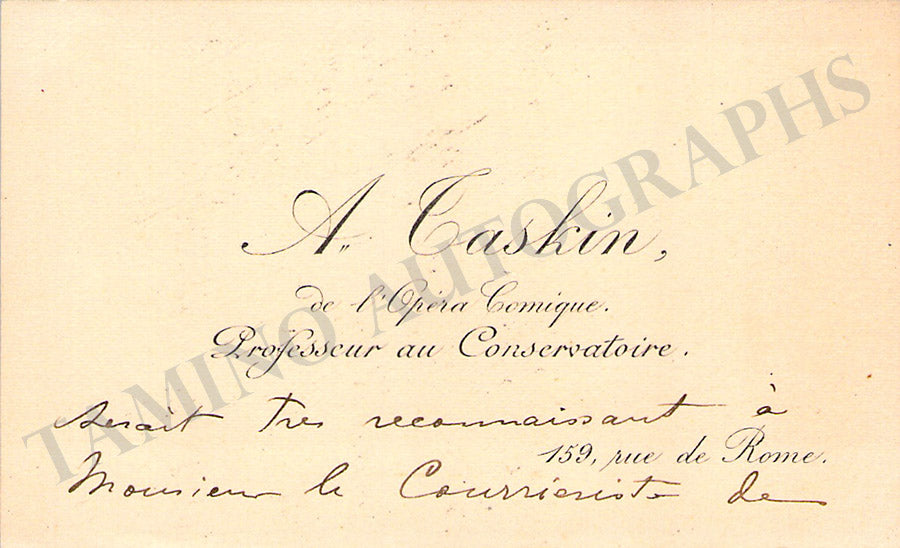 A. Taskin,
de l'Opéra Comique.
Professeur au Conservatoire.
serait très reconnaissant à
159, rue de Rome.
Monsieur le Courriériste de
TAMINO AUTOGRAPHS